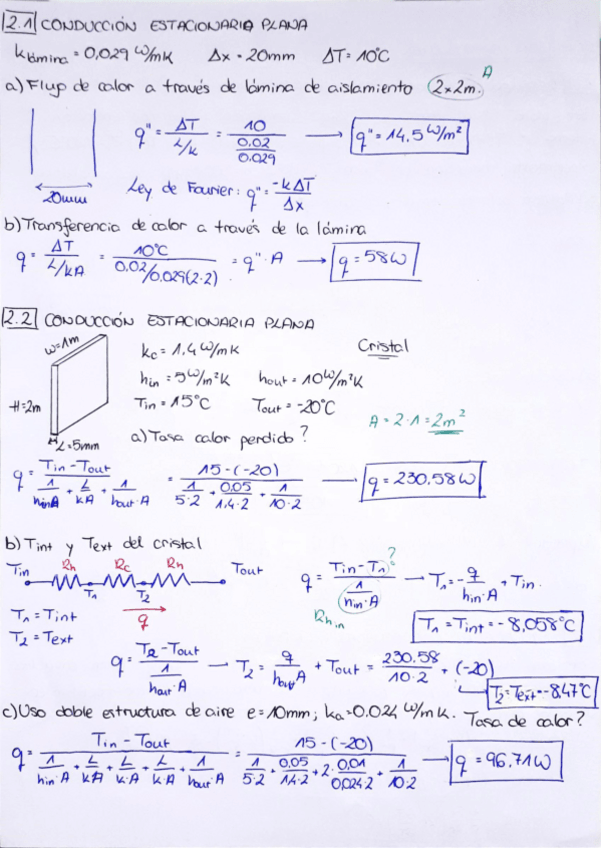 2.1 CONDUCCIÓN ESTACIONARIA PLANA
k lámina = 0,029 W/mK Δx = 20mm ΔT = 10°C
a) Flujo de calor a través de lámina de aislamiento 2x2m. A
q" = ΔT / (L/k) = 10 / (0.02/0.029) → q" = 14.5 W/m²
20mm
Ley de Fourier: q" = -kΔT / Δx
b) Transferencia de calor a través de la lámina
q = ΔT / (L/kA) = 10°C / (0.02/0.029(2·2)) = q"·A → q = 58W
2.2 CONDUCCIÓN ESTACIONARIA PLANA
w=1m
kc = 1,4 W/mK Cristal
hin = 5 W/m²K hout = 10 W/m²K
H=2m Tin = 15°C Tout = -20°C A = 2·1 = 2m²
L=5mm a) Tasa calor perdido?
q = (Tin - Tout) / (1/(hin A) + L/(kA) + 1/(hout·A)) = (15-(-20)) / (1/(5·2) + 0.05/(1.4·2) + 1/(10·2)) → q = 230.58W
b) Tint y Text del cristal
Tin Rh Rc Rh Tout
T1 T2
q
q = (Tin - T1) / (1/(hin·A)) ? → T1 = -q/(hin·A) + Tin.
Rhin
T1 = Tint
T2 = Text
T1 = Tint = -8,058°C
q = (T2 - Tout) / (1/(hout·A)) → T2 = q/(hout·A) + Tout = 230.58/(10·2) + (-20)
T2 = Text = -8.47°C
c) Uso doble estructura de aire e=10mm; ka=0.024 W/mK. Tasa de calor?
q = (Tin - Tout) / (1/(hin·A) + L/(k·A) + L/(k·A) + L/(k·A) + 1/(hout·A)) = (15-(-20)) / (1/(5·2) + 0.05/(1.4·2) + 2·0.01/(0.024·2) + 1/(10·2)) → q = 96.71W